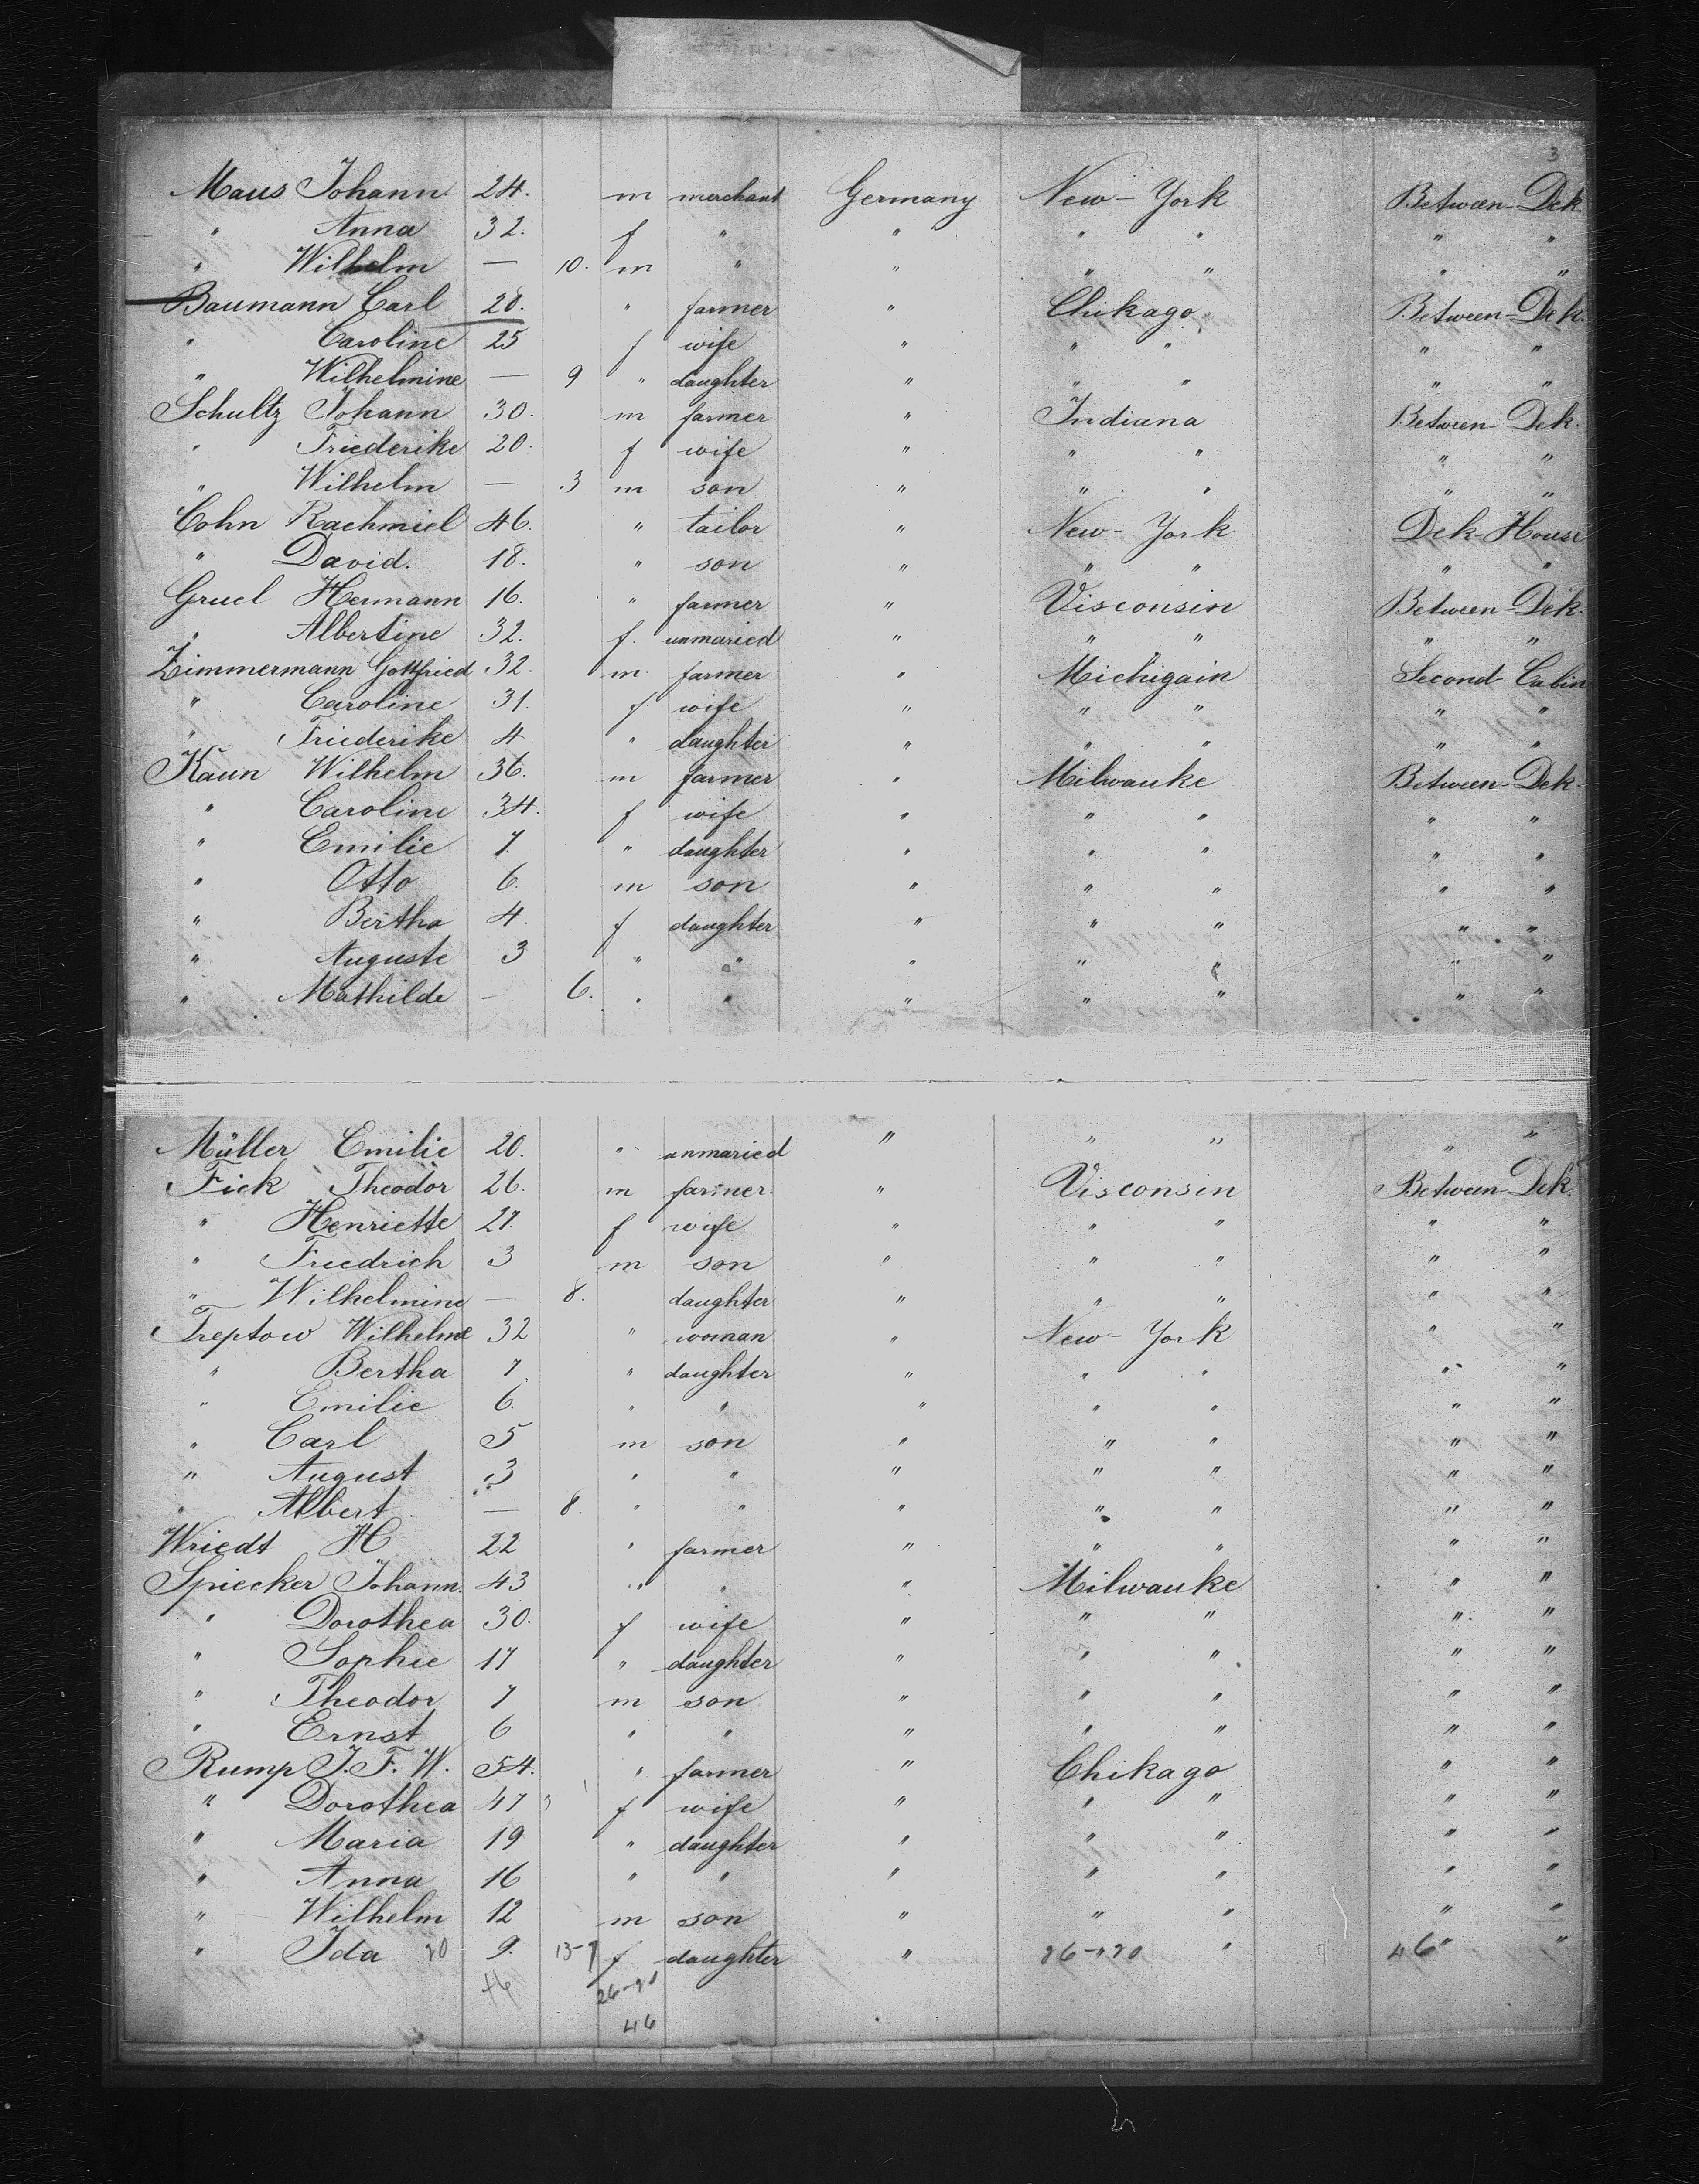 3
Maus Johann 24. m merchant Germany New-York Between-Dek
" Anna 32. f " " " " " "
" Wilhelm — 10. m " " " " " "
Baumann Carl 28. " farmer " Chikago Between-Dek.
" Caroline 25 f wife " " " " "
" Wilhelmine — 9 " daughter " " " " "
Schultz Johann 30. m farmer " Indiana Between Dek.
" Friederike 20. f wife " " " " "
" Wilhelm — 3 m son " " " " "
Cohn Rachmiel 46. " tailor " New-York Dek-House
" David. 18. " son " " " " "
Gruel Hermann 16. " farmer " Visconsin Between-Dek.
" Albertine 32. f. unmaried " " " " "
Zimmermann Gottfried 32. m. farmer " Michigain Second Cabin
" Caroline 31. f wife " " " " "
" Friederike 4 " daughter " " " " "
Kaun Wilhelm 36. m farmer " Milwauke Between-Dek.
" Caroline 34. f wife " " " " "
" Emilie 7. " daughter " " " " "
" Otto 6. m son " " " " "
" Bertha 4. f daughter " " " " "
" Auguste 3 " " " " " " "
" Mathilde — 6. " " " " " " "
Müller Emilie 20. " unmaried " " " " "
Fick Theodor 26. m farmer. " Visconsin Between Dek.
" Henriette 27. f wife " " " " "
" Friedrich 3 m son " " " " "
" Wilhelmine — 8. daughter " " " " "
Treptow Wilhelme 32 " woman " New-York " "
" Bertha 7. " daughter " " " " "
" Emilie 6. " " " " " " "
" Carl 5 m son " " " " "
" August 3 " " " " " " "
" Albert — 8. " " " " " " "
Wriedt H 22 " farmer " " " " "
Spiecker Johann. 43 " " " Milwauke " "
" Dorothea 30. f wife " " " " "
" Sophie 17 " daughter " " " " "
" Theodor 7 m son " " " " "
" Ernst 6 " " " " " " "
Rump J. F. W. 54. " farmer " Chikago " "
" Dorothea 47 f wife " " " " "
" Maria 19 " daughter " " " " "
" Anna 16 " " " " " " "
" Wilhelm 12 m son " " " " "
" Ida 9. f daughter " " 46 " "
46
46